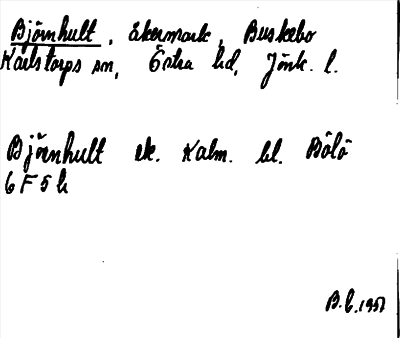 Björnhult, åkermark, Buskebo
Karlstorps sn, Östra hd, Jönk. l.
Björnhult ek. Kalm. bl. Bölö
6 F 5 h
B.C. 1951